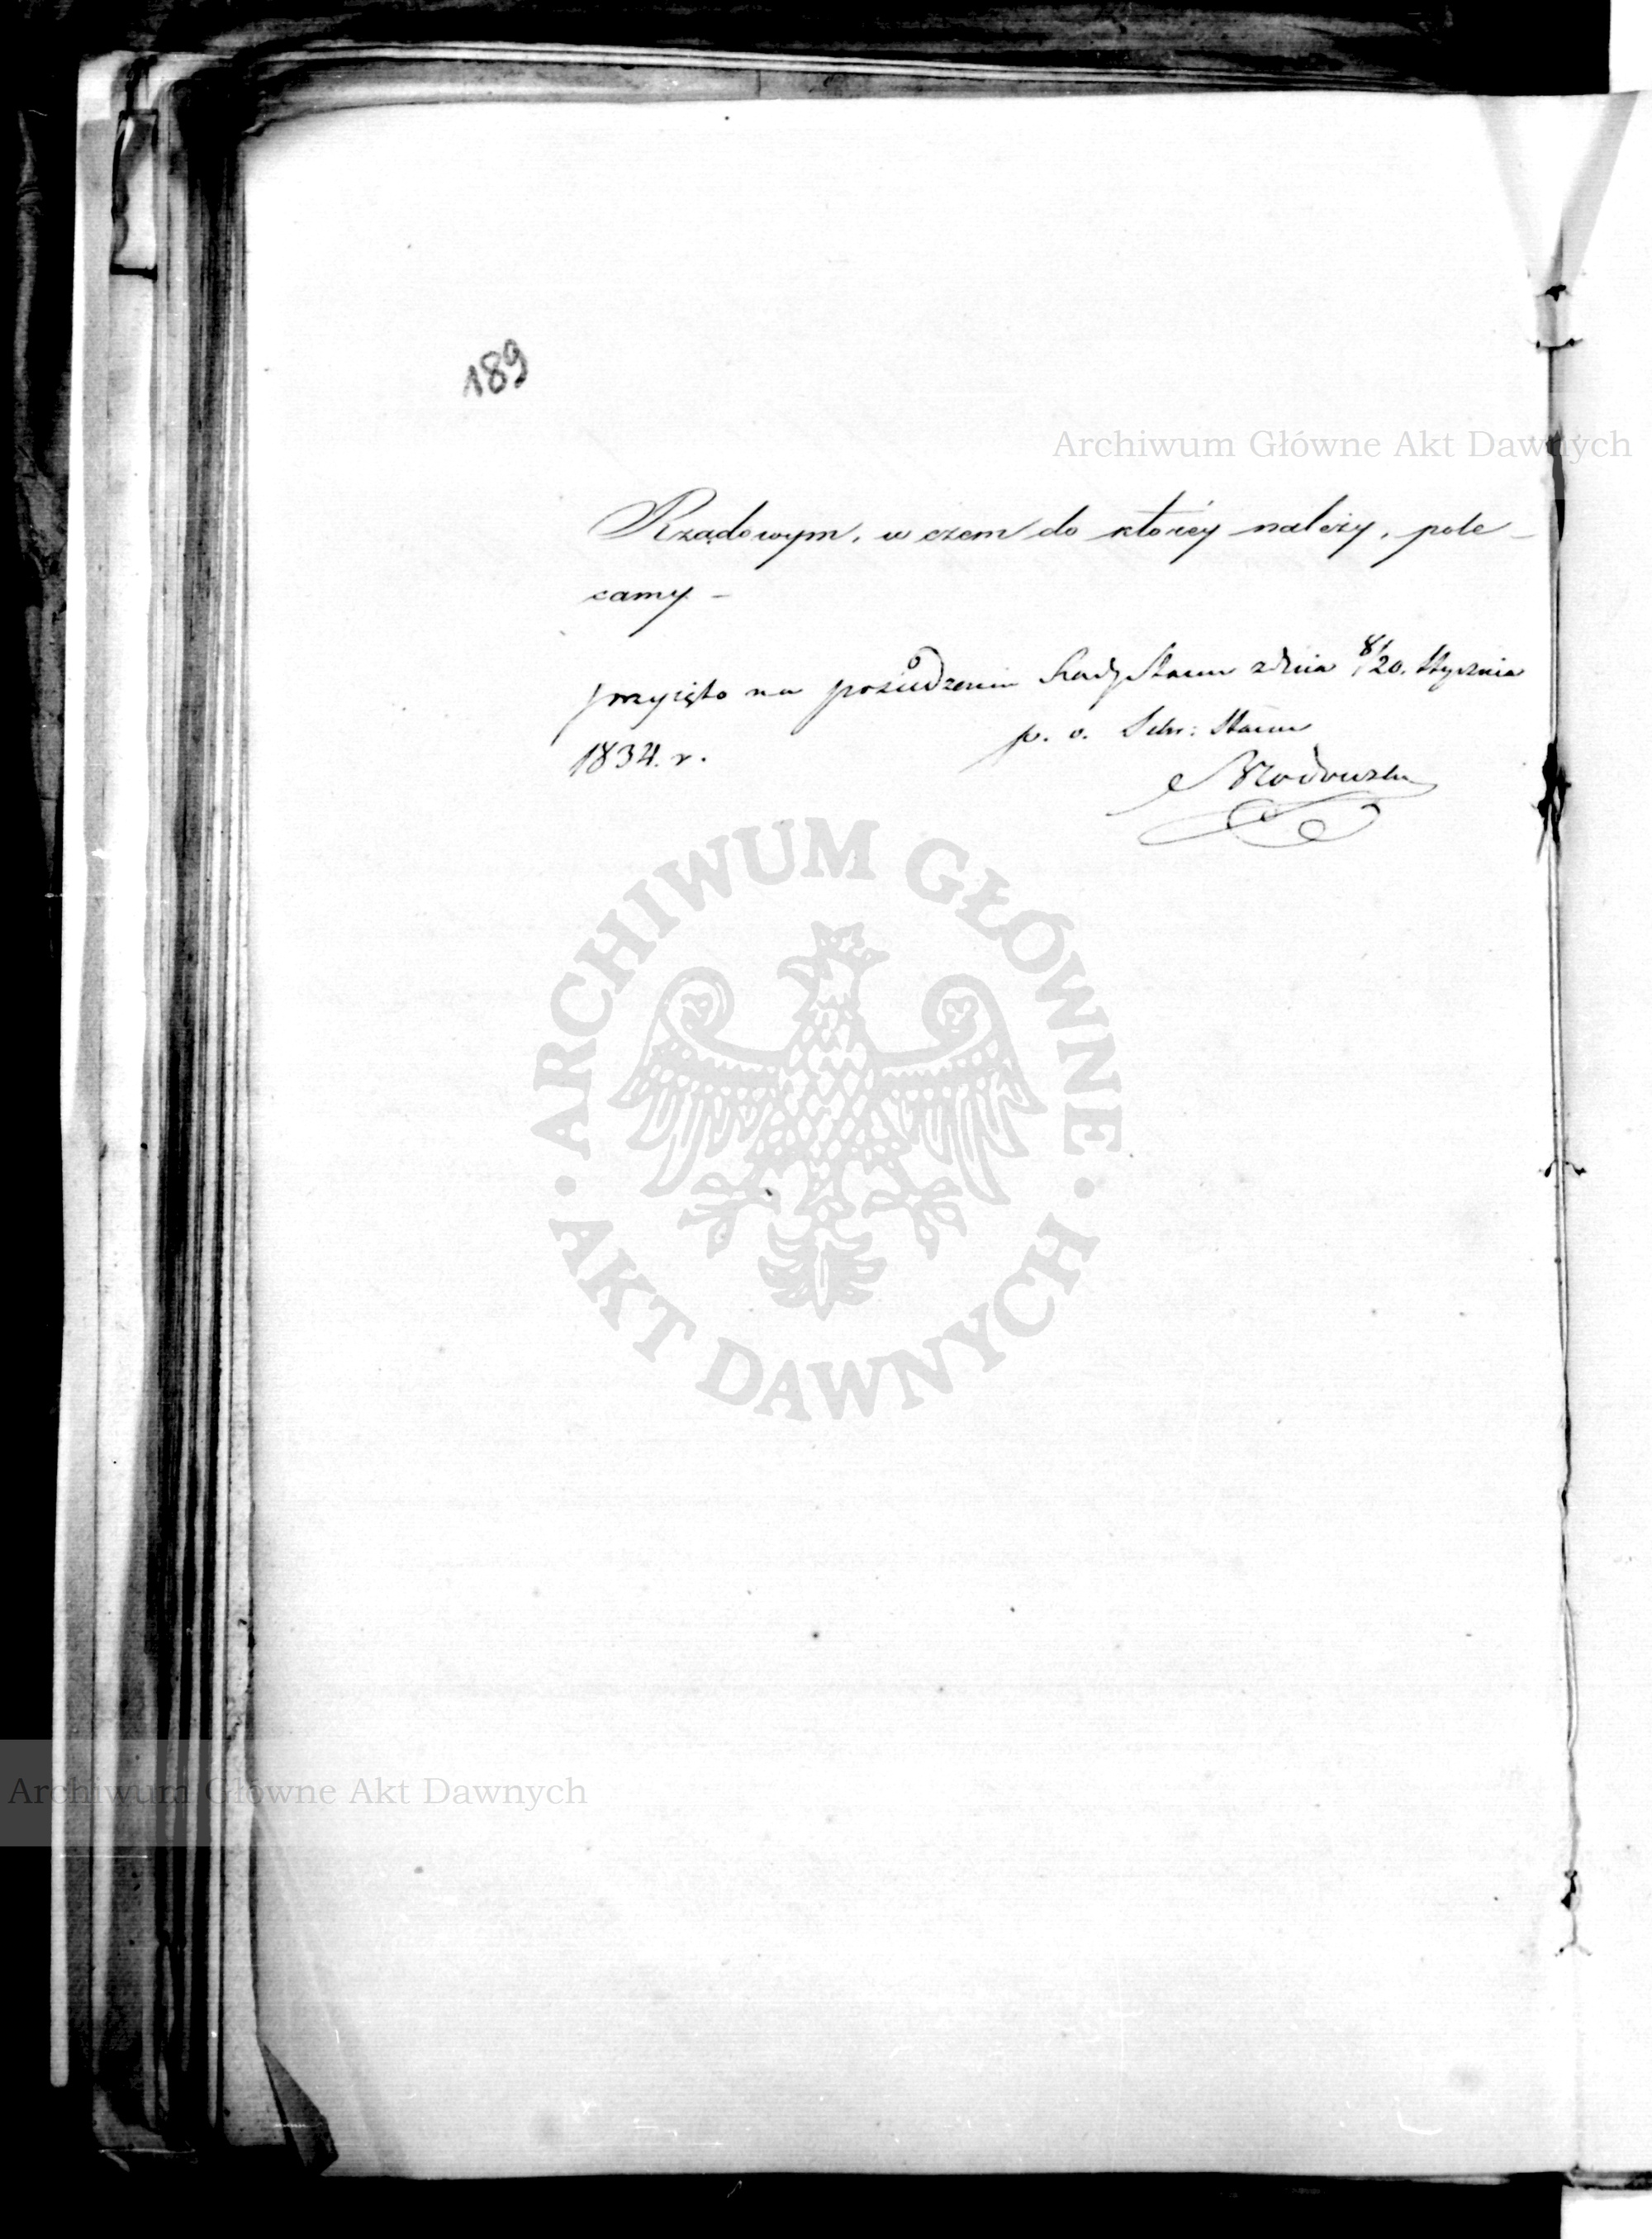 189
Archiwum Główne Akt Dawnych
Rządowym, w czem do którey należy, pole-
camy -
przyięto na posiedzeniu Rady Stanu z dnia 8/20. Stycznia
1834. r.
p. o. Sekr: Stanu
ARCHIWUM GŁÓWNE
AKT DAWNYCH
Archiwum Główne Akt Dawnych